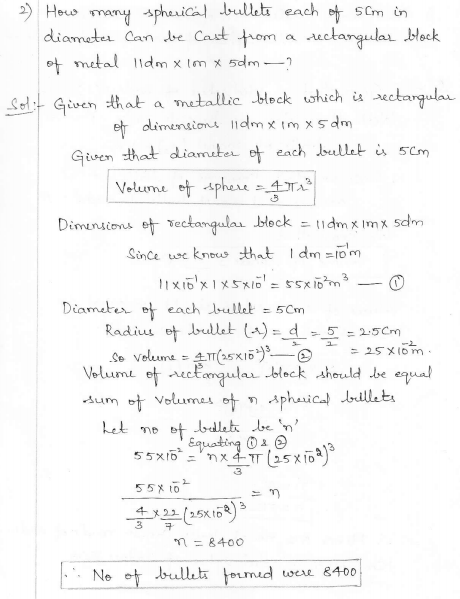 2) How many spherical bullets each of 5cm in
diameter can be cast from a rectangular block
of metal 11dm x 1m x 5dm —?
Sol:- Given that a metallic block which is rectangular
of dimensions 11dm x 1m x 5dm
Given that diameter of each bullet is 5cm
Volume of sphere = 4/3 πr³
Dimensions of rectangular block = 11dm x 1m x 5dm
Since we know that 1dm = 10⁻¹m
11x10⁻¹ x 1 x 5x10⁻¹ = 55x10⁻²m³ — ①
Diameter of each bullet = 5cm
Radius of bullet (r) = d/2 = 5/2 = 2.5cm
So volume = 4/3 π(25x10⁻²)³ — ② = 25x10⁻²m.
Volume of rectangular block should be equal
sum of volumes of n spherical bullets
Let no of bullets be 'n'
Equating ① & ②
55x10⁻² = n x 4/3 π (25x10⁻²)³
55x10⁻² / (4/3 x 22/7 (25x10⁻²)³) = n
n = 8400
∴ No of bullets formed were 8400